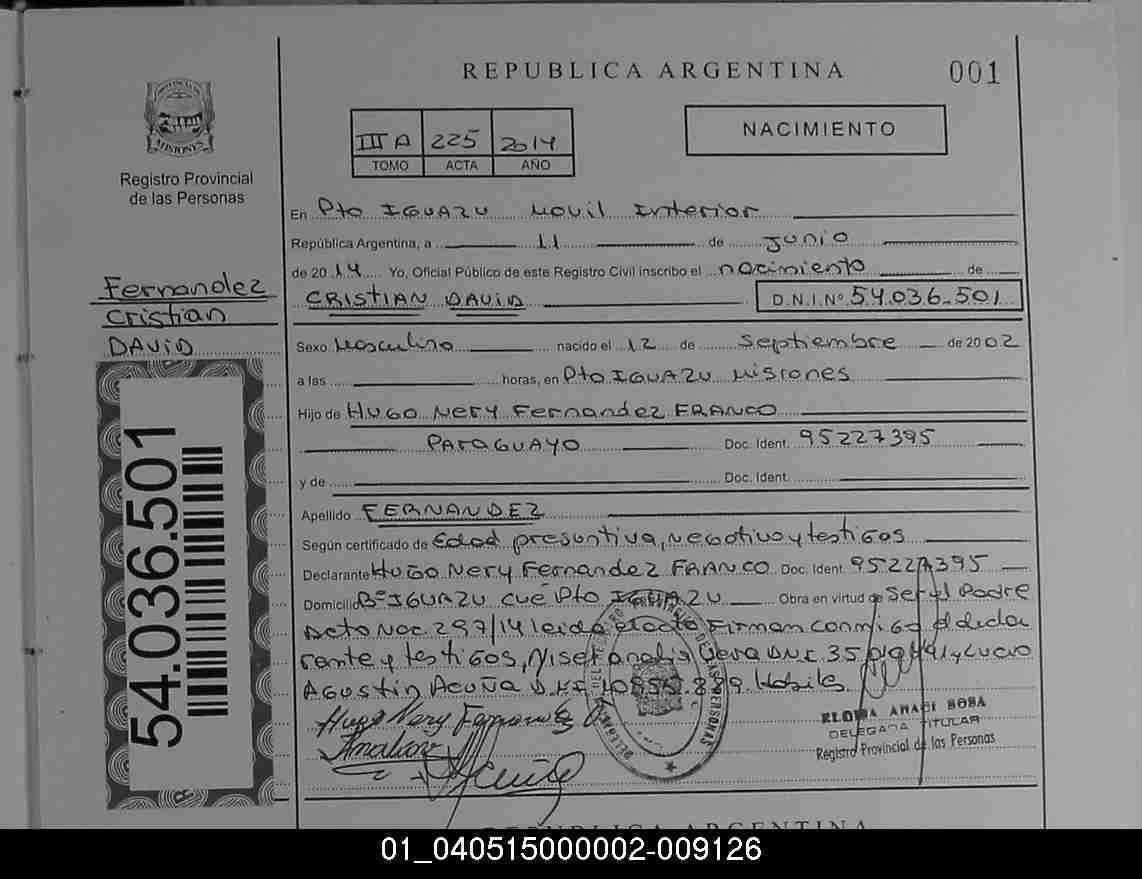 REPUBLICA ARGENTINA
001
PROVINCIA DE
MISIONES
Registro Provincial
de las Personas
III A 225 2014
TOMO ACTA AÑO
NACIMIENTO
En Pto IGUAZU Movil Interior
República Argentina, a 11 de Junio
de 2014 Yo, Oficial Público de este Registro Civil inscribo el nacimiento de
CRISTIAN DAVID D.N.I.Nº 54.036.501
Fernandez
Cristian
DAVID
54.036.501
Sexo Masculino nacido el 12 de Septiembre de 2002
a las horas, en Pto IGUAZU Misiones
Hijo de HUGO NERY Fernandez FRANCO
PARAGUAYO Doc. Ident. 95227395
y de Doc. Ident.
Apellido FERNANDEZ
Según certificado de Edad presuntiva, negativo y testigos
Declarante HUGO Nery Fernandez FRANCO Doc. Ident. 95227395
Domicilio Bº IGUAZU cue Pto IGUAZU Obra en virtud de ser el Padre
Acto Nac. 297/14 leida el acta Firman conmigo el decla
rante y testigos, Vera DNI. 35 y Lucio
AGustin Acuña D.NI. Habiles
Hugo Nery Fernandez
DE LAS PERSONAS
ELOISA ANAHI SOSA
DELEGADA TITULAR
Registro Provincial de las Personas
REPUBLICA ARGENTINA
01_040515000002-009126